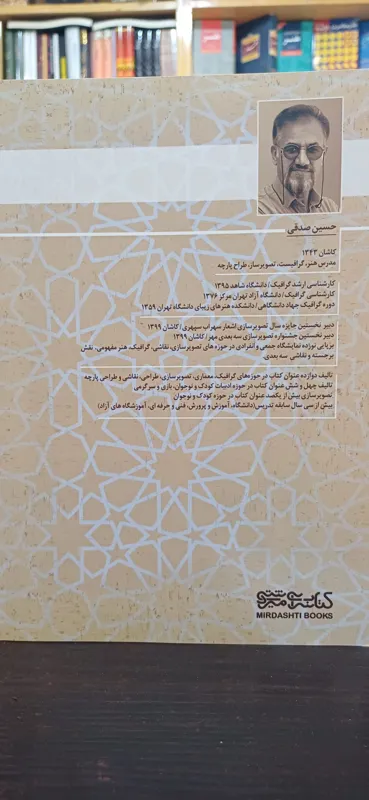 حسین صدقی
کاشان ۱۳۴۳
مدرس هنر، گرافیست، تصویرساز، طراح پارچه
کارشناسی ارشد گرافیک/ دانشگاه شاهد ۱۳۹۵
کارشناسی گرافیک/ دانشگاه آزاد تهران مرکز ۱۳۷۶
دوره گرافیک جهاد دانشگاهی/ دانشکده هنرهای زیبای دانشگاه تهران ۱۳۵۹
دبیر نخستین جایزه سال تصویرسازی اشعار سهراب سپهری/ کاشان ۱۳۹۹
دبیر نخستین جشنواره تصویرسازی سه بعدی مهر/ کاشان ۱۳۹۹
برپایی نوزده نمایشگاه جمعی و انفرادی در حوزه های تصویرسازی، نقاشی، گرافیک، هنر مفهومی، نقش
برجسته و نقاشی سه بعدی.
تالیف دوازده عنوان کتاب در حوزه‌های گرافیک، معماری، تصویرسازی، طراحی، نقاشی و طراحی پارچه
تالیف چهل و شش عنوان کتاب در حوزه ادبیات کودک و نوجوان، بازی و سرگرمی
تصویرسازی بیش از یکصد عنوان کتاب در حوزه کودک و نوجوان
بیش از سی سال سابقه تدریس(دانشگاه، آموزش و پرورش، فنی و حرفه ای، آموزشگاه های آزاد)
کتابسرای میردشتی
MIRDASHTI BOOKS